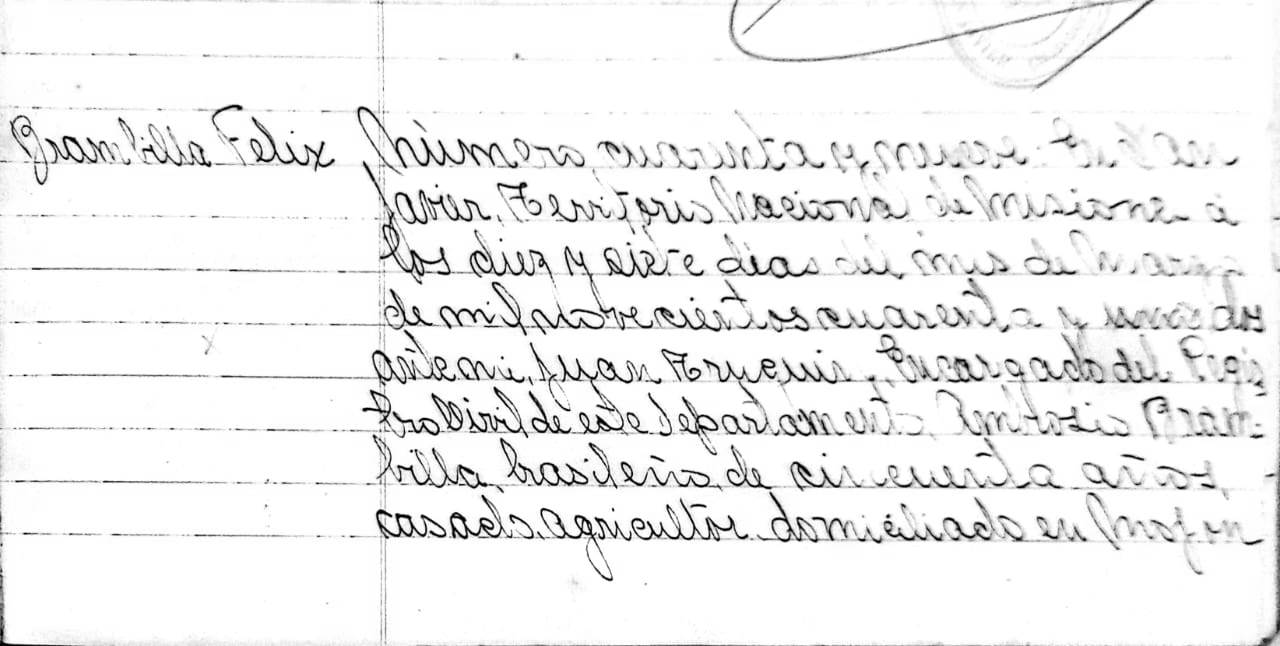 Brambilla Felix Número cuarenta y nueve. En San
Javier, Territorio Nacional de Misiones a
los diez y siete dias del mes de Marzo
de mil novecientos cuarenta y
ante mi, Juan Encargado del Regis
tro Civil de este departamento, Ambrosio Bram-
billa, brasileño, de cincuenta años,
casado, agricultor domiciliado en Mojon